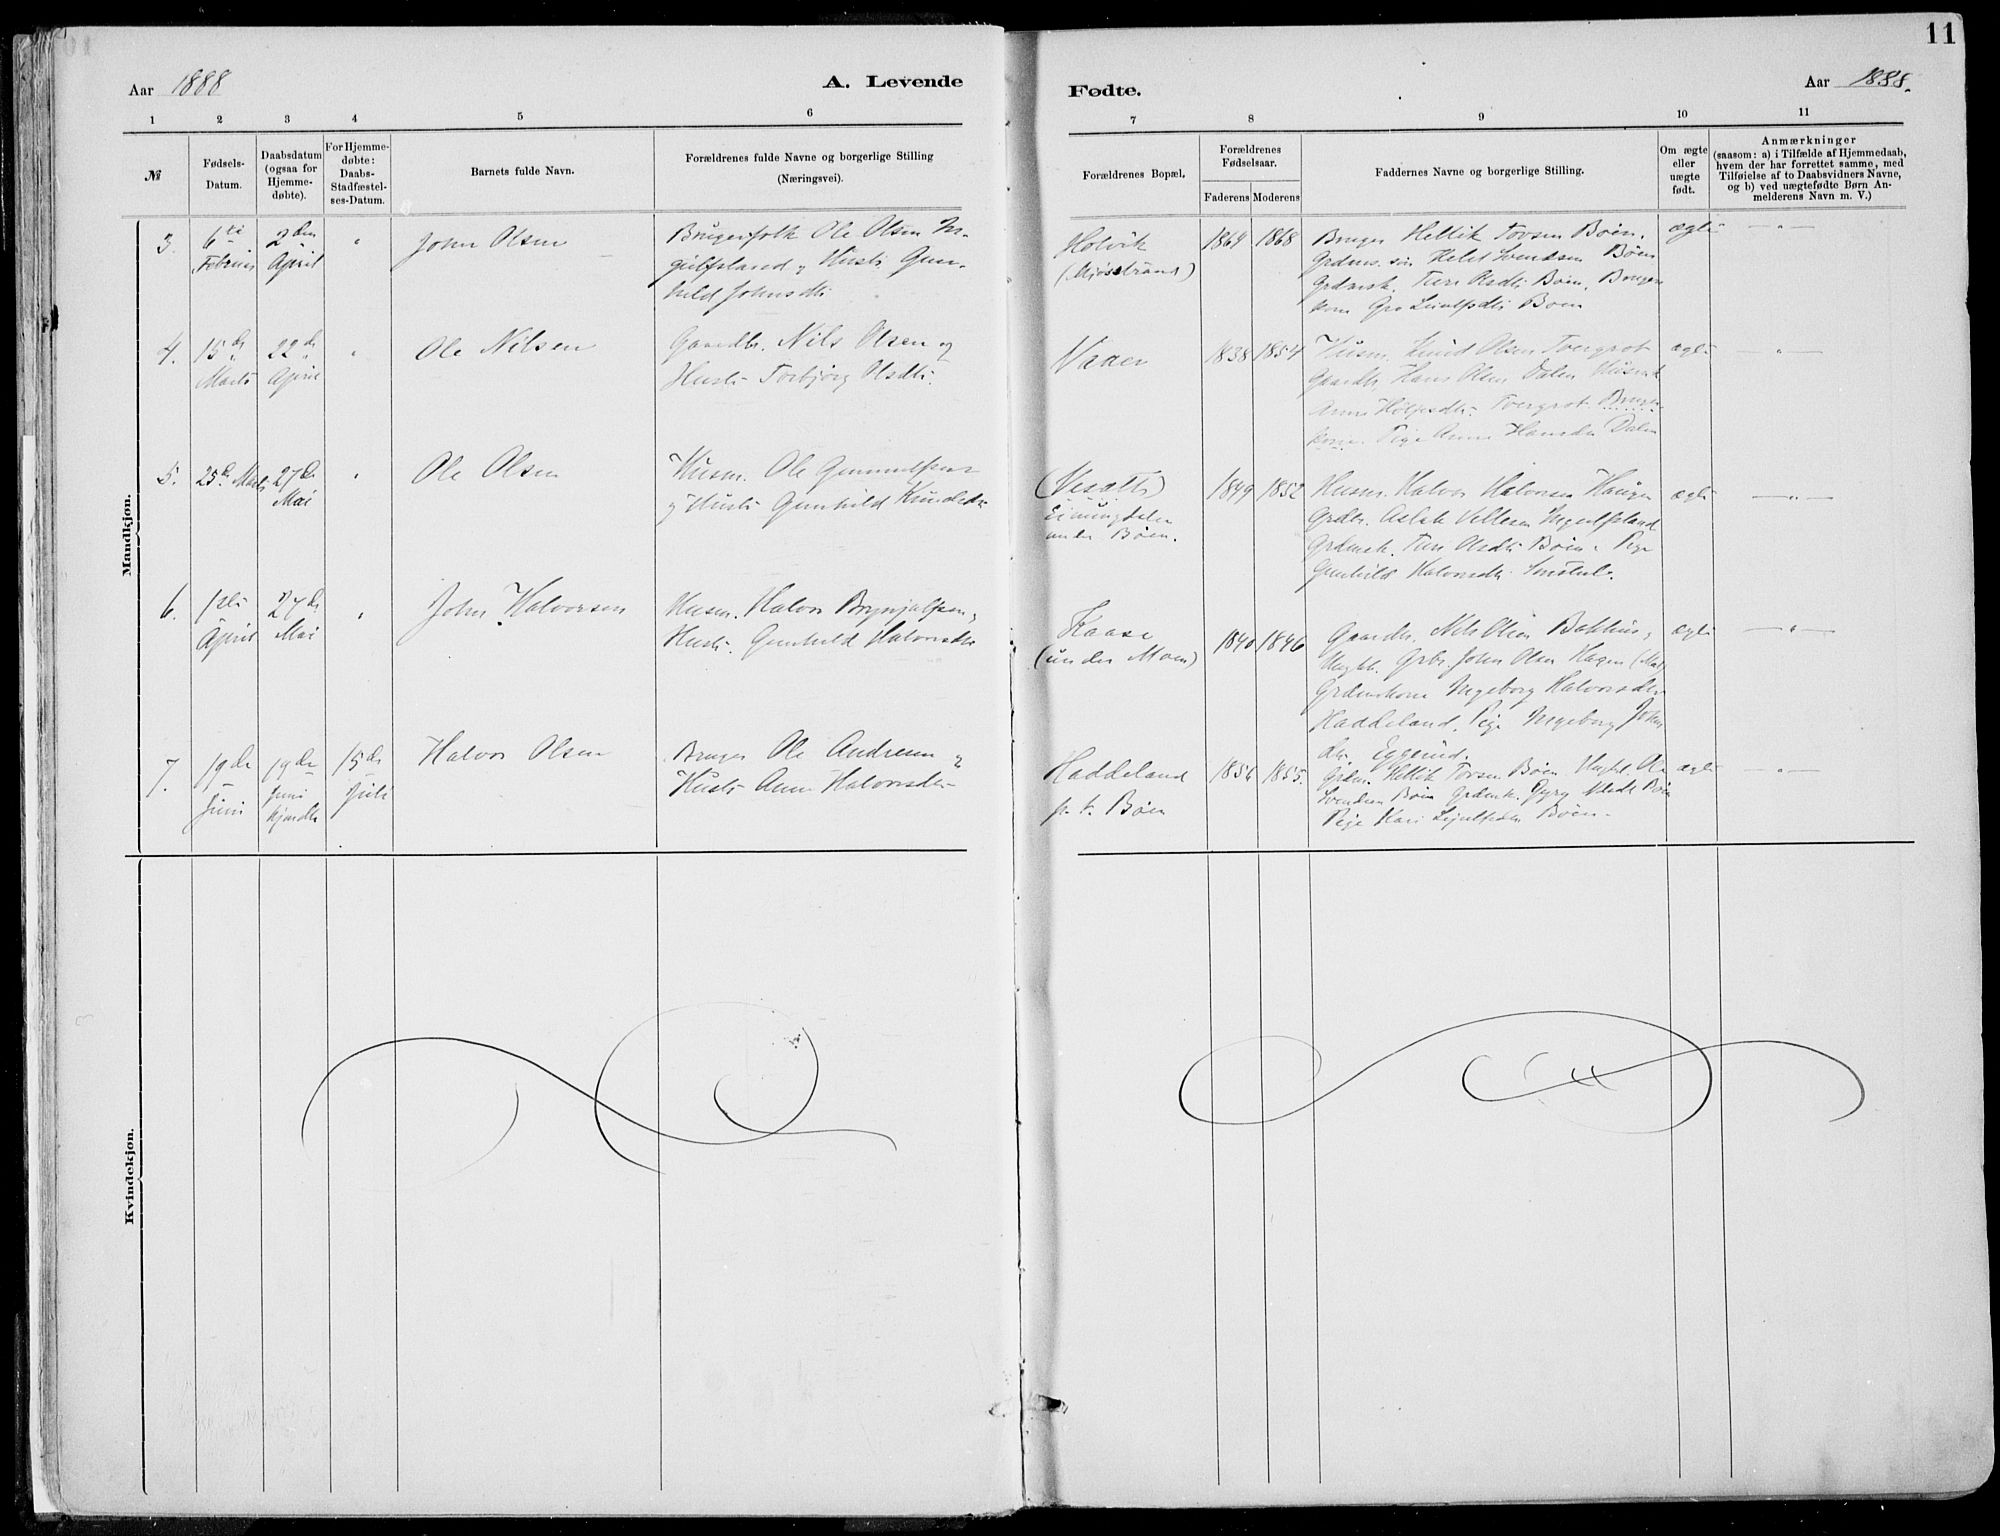 11
Aar 1888
A. Levende
Fødte.
Aar 1888.
1 2 3 4 5 6
7 8 9 10 11
№
Fødsels-
Datum.
Daabsdatum
(ogsaa for
Hjemme-
døbte).
For Hjemme-
døbte:
Daabs-
Stadfæstel-
ses-Datum.
Barnets fulde Navn.
Forældrenes fulde Navne og borgerlige Stilling
(Næringsvei).
Forældrenes Bopæl.
Forældrenes
Fødselsaar.
Faderens Moderens
Faddernes Navne og borgerlige Stilling.
Om ægte
eller
uægte
født.
Anmærkninger
(saasom: a) i Tilfælde af Hjemmedaab,
hvem der har forrettet samme, med
Tilføielse af to Daabsvidners Navne,
og b) ved uægtefødte Børn An-
melderens Navn m. V.)
Mandkjøn.
3.
6te
Februar
2den
April
"
John Olsen
Brugerfolk Ole Olsen In-
gulfsland og Hustr Gun-
hild Johnsdtr
Holvik
(Mjøsstrand)
1864 1868
Bruger Hellik Tovsen Bøen.
Grdms. søn Svendsen Bøen
Grdmsk. Turi Olsdtr Bøen. Bruger-
kone Gro Leiulfsdtr Bøen
ægte
— " —
4.
15de
Marts
22de
April
"
Ole Nilsen
Gaardbr. Nils Olsen og
Hustr Torbjørg Olsdtr.
Vaaer
1838 1854
Husm. Knud Olsen Tvergrot
Gaardbr. Hans Olsen Dalen
Anne Tvergrot. Bruger-
kone. Pige Anne Hansdtr Dalen
ægte
— " —
5.
25de Marts
27de
Mai
"
Ole Olsen
Husm. Ole Gunnulfsen
og Hustr Gunhild Knudsdtr
(Vesatti)
under Bøen.
1849 1852
Husm. Halvor Halvorsen Haugen
Grdbr. Aslak Ingulfsland
Grdmsk. Turi Olsdtr Bøen. Pige
Gunhild Halvorsdtr
ægte
— " —
6.
1ste
April
27de
Mai
"
John Halvorsen
Husm. Halvor Brynjulfsen og
Hustr. Gunhild Halvorsdtr
Kaase
(under Moen)
1840 1846
Gaardbr. Nils Olsen Bakhus,
Ungk. Grbr. John Olsen Hagen
Grdmskone Ingeborg Halvorsdtr
Haddeland. Pige Ingeborg Johns
dtr Eggerud.
ægte
— " —
7.
19de
Juni
19de
Juni
hjmdbt
15de
Juli
Halvor Olsen
Bruger Ole Andresen og
Hustr Anne Halvorsdtr
Haddeland
p. t. Bøen
1856 1855.
Grdm. Hellik Tovsen Bøen Ungk. Ole
Svendsen Bøen Grdmk. Gyro Bøen
Pige Kari Lejulfsdtr Bøen.
ægte
— " —
Kvindekjøn.